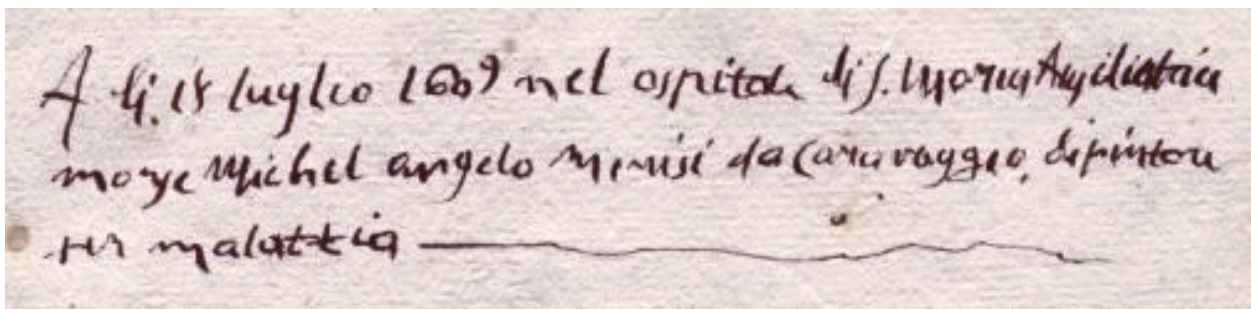 A li 18 luglio 1609 nel ospitale di S. Maria Ausiliatrice
morse Michel angelo Merisi da Caravaggio dipintore
per malattia